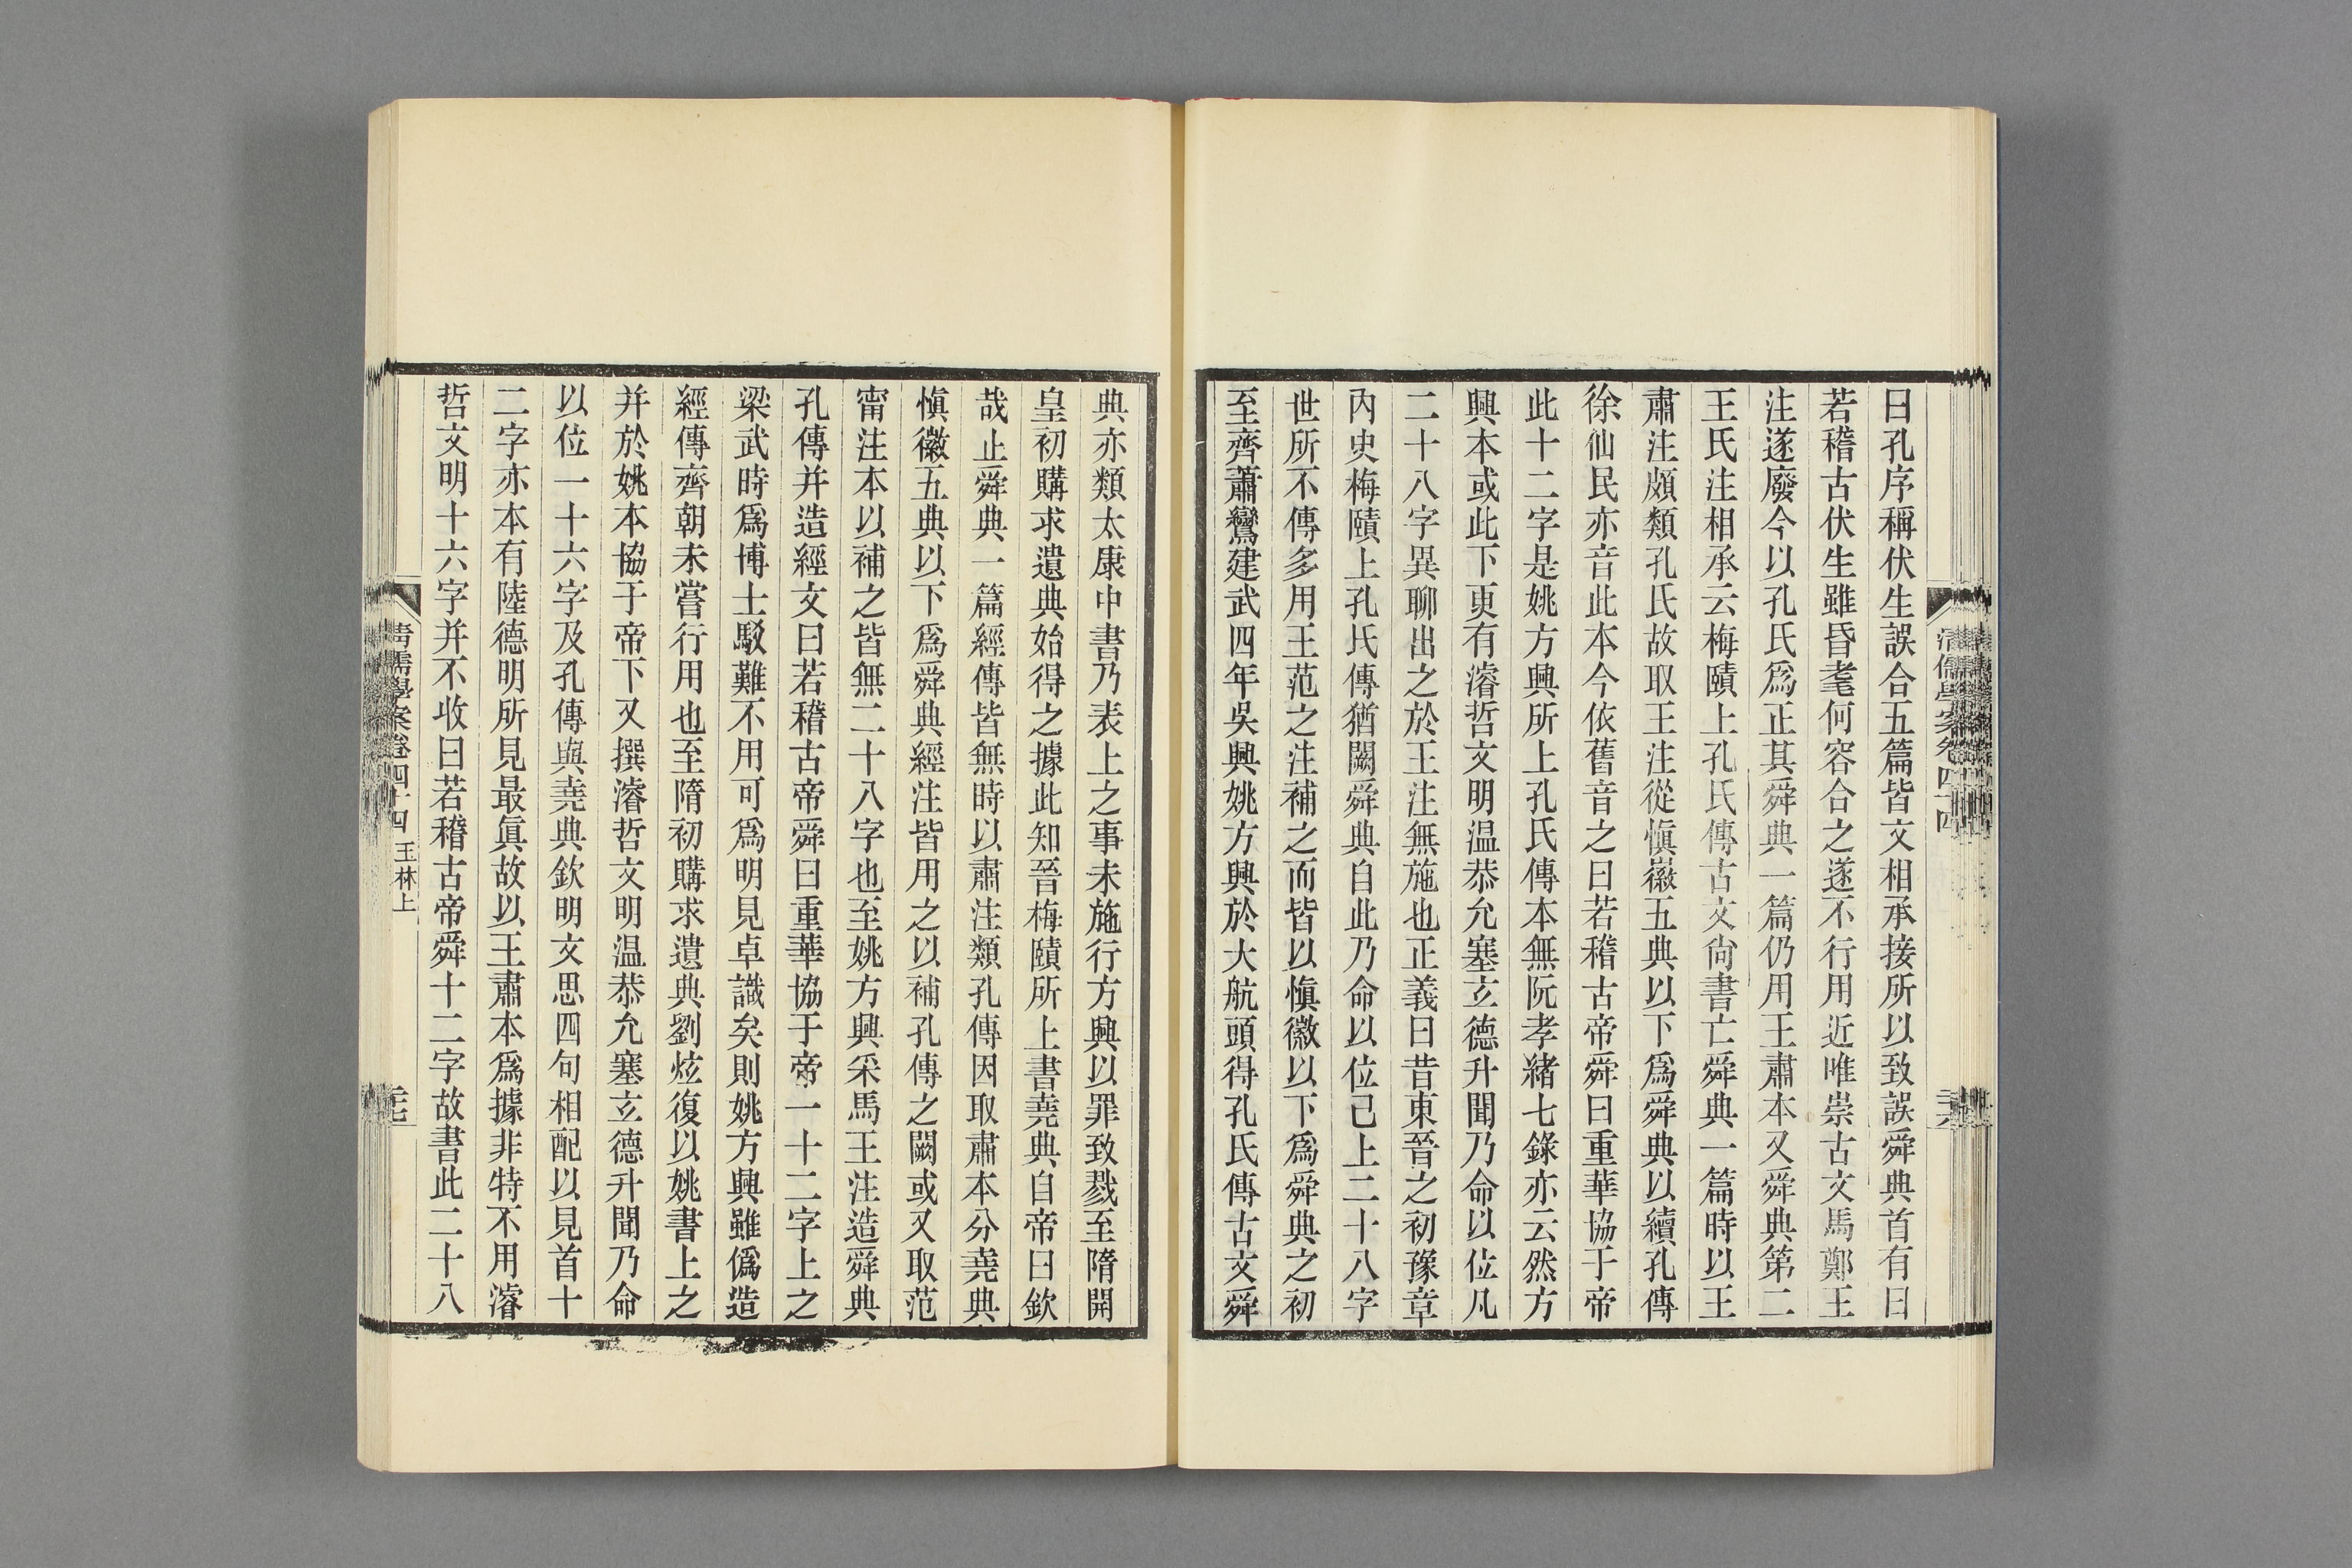 曰孔序稱伏生誤合五篇皆文相承接所以致誤舜典首有曰
若稽古伏生雖昏耄何容合之遂不行用近唯崇古文馬鄭王
注遂廢今以孔氏爲正其舜典一篇仍用王肅本又舜典第二
王氏注相承云梅賾上孔氏傳古文尙書亡舜典一篇時以王
肅注頗類孔氏故取王注從愼徽五典以下爲舜典以續孔傳
徐仙民亦音此本今依舊音之曰若稽古帝舜曰重華協于帝
此十二字是姚方興所上孔氏傳本無阮孝緒七錄亦云然方
興本或此下更有濬哲文明温恭允塞玄德升聞乃命以位凡
二十八字異聊出之於王注無施也正義曰昔東晉之初豫章
內史梅賾上孔氏傳猶闕舜典自此乃命以位已上二十八字
世所不傳多用王范之注補之而皆以愼徽以下爲舜典之初
至齊蕭鸞建武四年吳興姚方興於大航頭得孔氏傳古文舜
典亦類太康中書乃表上之事未施行方興以罪致戮至隋開
皇初購求遺典始得之據此知晉梅賾所上書堯典自帝曰欽
哉止舜典一篇經傳皆無時以肅注類孔傳因取肅本分堯典
愼徽五典以下爲舜典經注皆用之以補孔傳之闕或又取范
甯注本以補之皆無二十八字也至姚方興采馬王注造舜典
孔傳并造經文曰若稽古帝舜曰重華協于帝一十二字上之
梁武時爲博士駁難不用可爲明見卓識矣則姚方興雖僞造
經傳齊朝未嘗行用也至隋初購求遺典劉炫復以姚書上之
并於姚本協于帝下又撰濬哲文明温恭允塞玄德升聞乃命
以位一十六字及孔傳與堯典欽明文思四句相配以見首十
二字亦本有陸德明所見最眞故以王肅本爲據非特不用濬
哲文明十六字并不收曰若稽古帝舜十二字故書此二十八
清儒學案卷四十四 玉林上